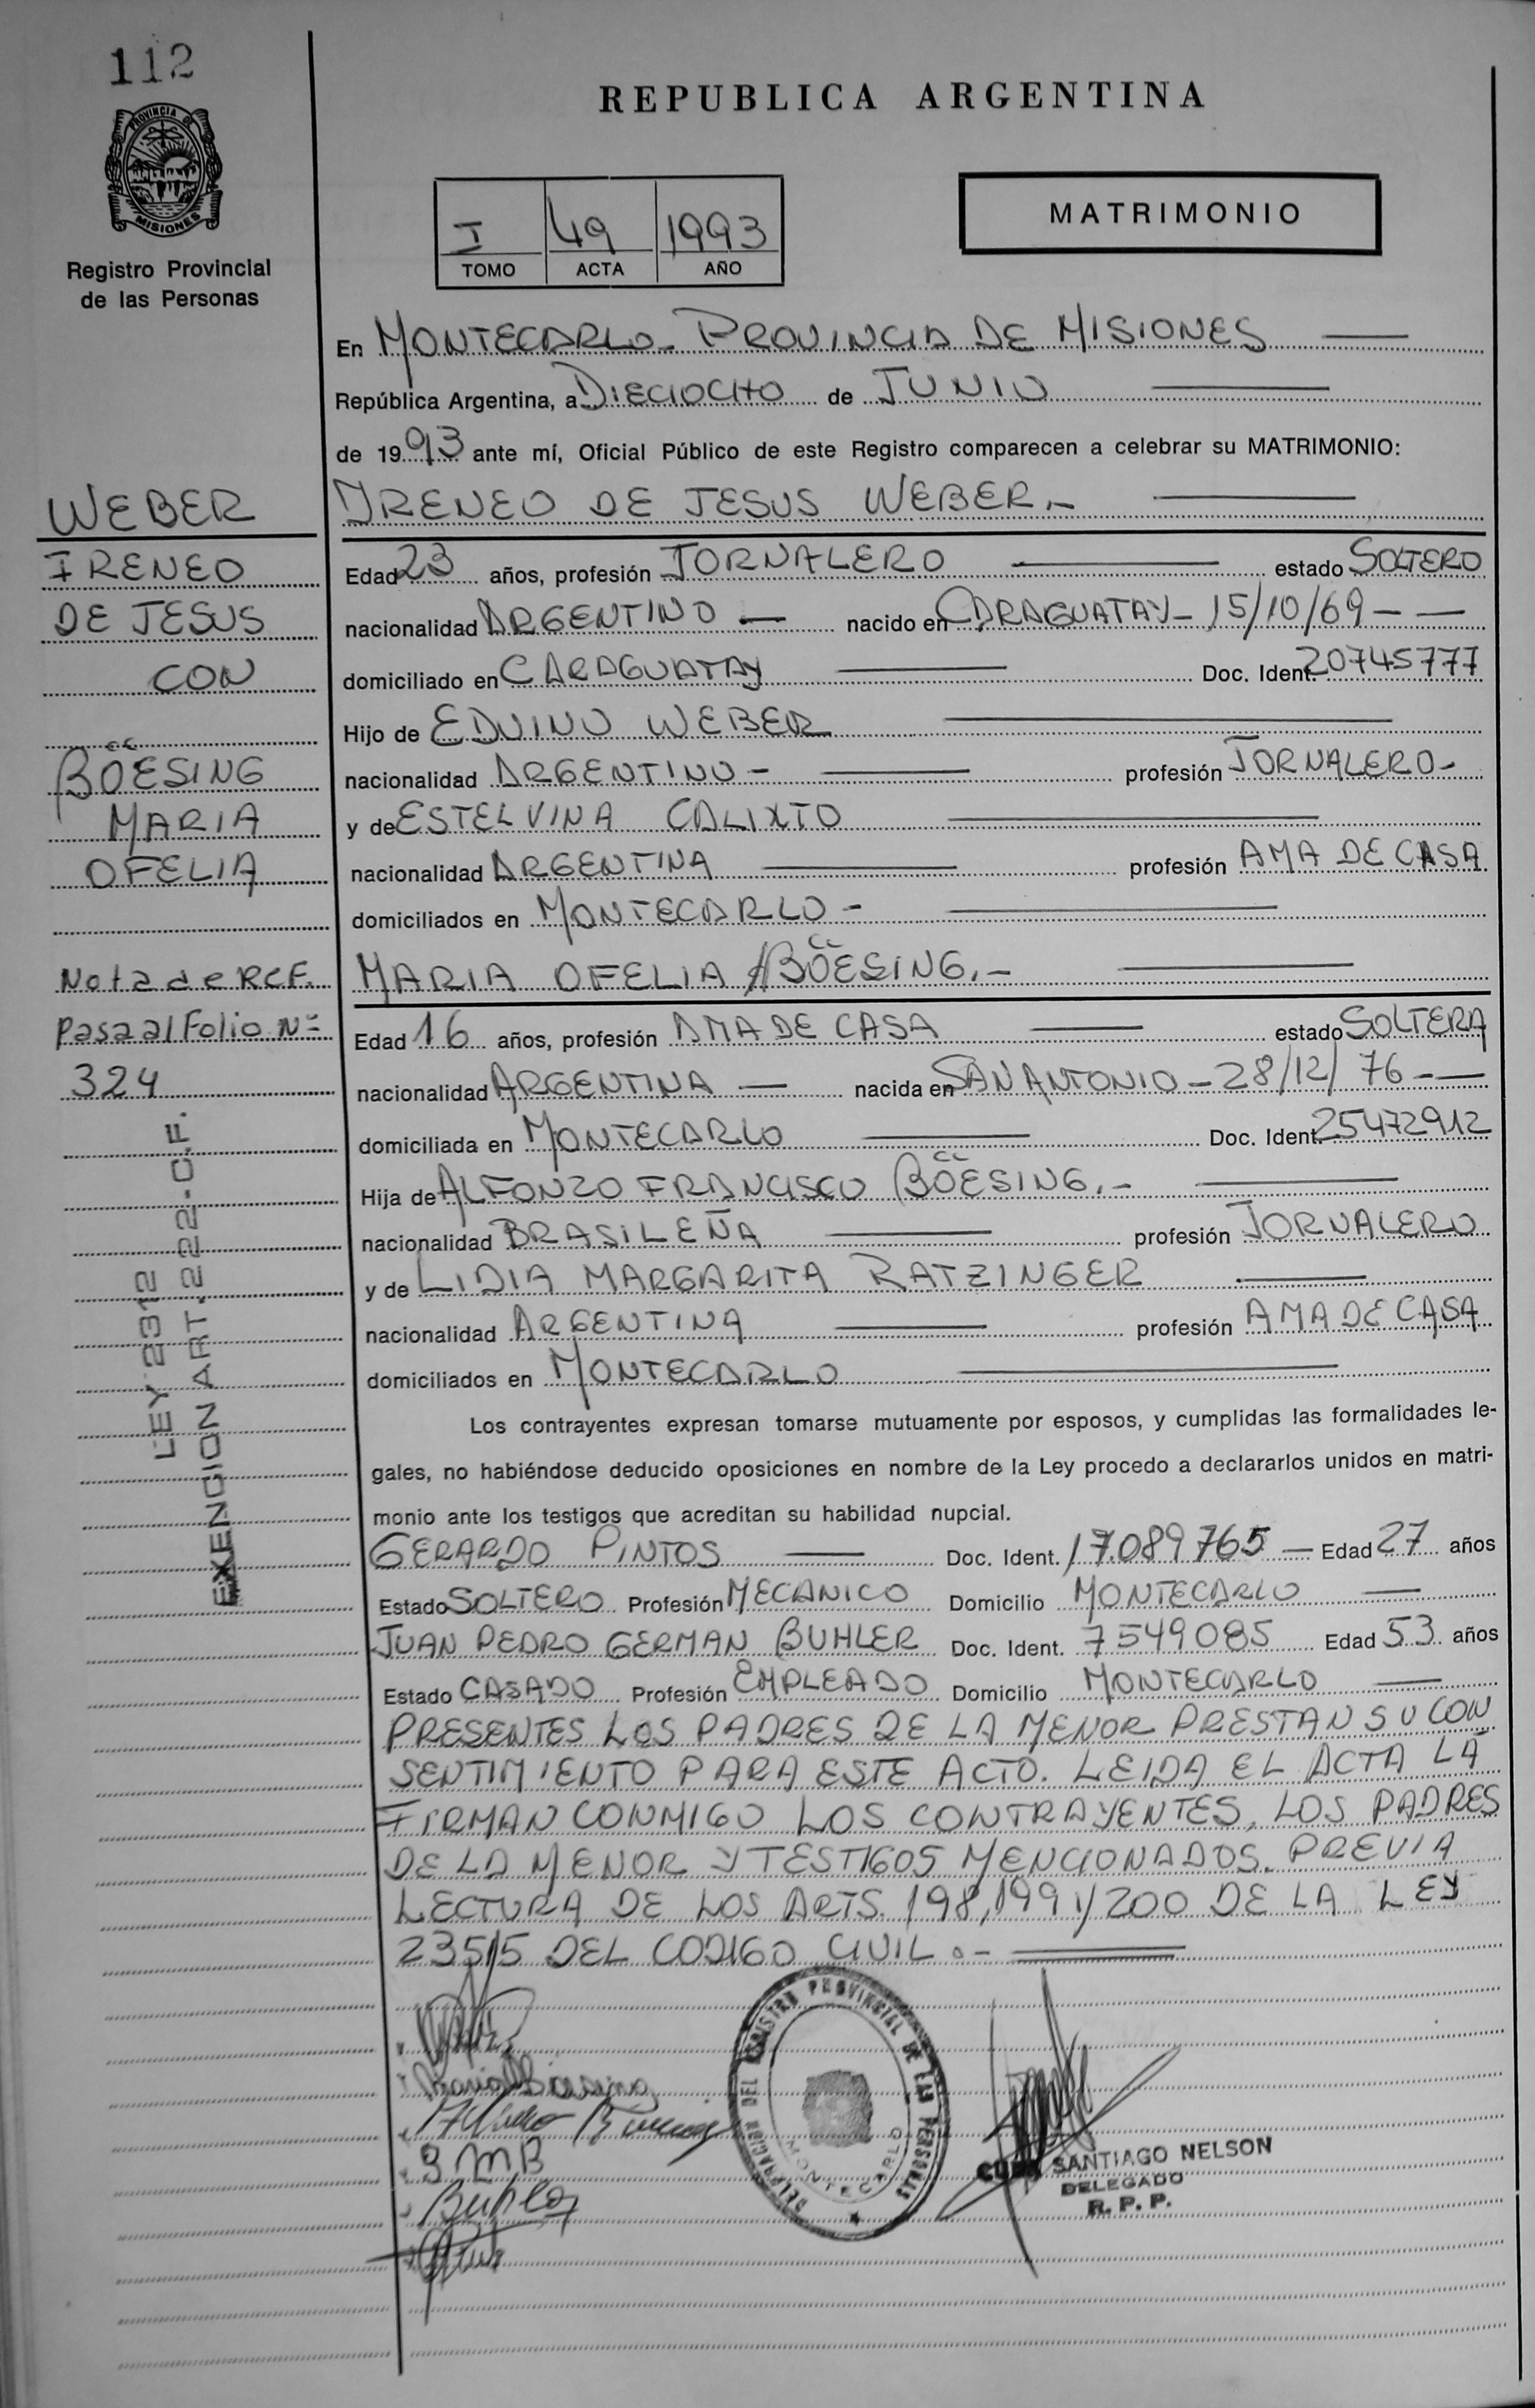 112
PROVINCIA DE
MISIONES
Registro Provincial
de las Personas
REPUBLICA ARGENTINA
I 49 1993
TOMO ACTA AÑO
MATRIMONIO
En MONTECARLO - PROVINCIA DE MISIONES
República Argentina, a DIECIOCHO de JUNIO
de 1993 ante mí, Oficial Público de este Registro comparecen a celebrar su MATRIMONIO:
IRENEO DE JESUS WEBER.-
Edad 23 años, profesión JORNALERO estado SOLTERO
nacionalidad ARGENTINO — nacido en CARAGUATAY - 15/10/69 - —
domiciliado en CARAGUATAY Doc. Ident. 20745777
Hijo de EDVINO WEBER
nacionalidad ARGENTINO - profesión JORNALERO -
y de ESTELVINA CALIXTO
nacionalidad ARGENTINA profesión AMA DE CASA
domiciliados en MONTECARLO -
MARIA OFELIA BÖESING.-
Edad 16 años, profesión AMA DE CASA estado SOLTERA
nacionalidad ARGENTINA — nacida en SAN ANTONIO - 28/12/76 - —
domiciliada en MONTECARLO Doc. Ident. 25472912
Hija de ALFONZO FRANCISCO BÖESING.-
nacionalidad BRASILEÑA profesión JORNALERO
y de LIDIA MARGARITA RATZINGER
nacionalidad ARGENTINA profesión AMA DE CASA
domiciliados en MONTECARLO
Los contrayentes expresan tomarse mutuamente por esposos, y cumplidas las formalidades le-
gales, no habiéndose deducido oposiciones en nombre de la Ley procedo a declararlos unidos en matri-
monio ante los testigos que acreditan su habilidad nupcial.
GERARDO PINTOS — Doc. Ident. 17.089765 — Edad 27 años
Estado SOLTERO Profesión MECANICO Domicilio MONTECARLO
JUAN PEDRO GERMAN BUHLER Doc. Ident. 7549085 Edad 53 años
Estado CASADO Profesión EMPLEADO Domicilio MONTECARLO
PRESENTES LOS PADRES DE LA MENOR PRESTAN SU CON
SENTIMIENTO PARA ESTE ACTO. LEIDA EL ACTA LA
FIRMAN CONMIGO LOS CONTRAYENTES, LOS PADRES
DE LA MENOR Y TESTIGOS MENCIONADOS. PREVIA
LECTURA DE LOS ARTS. 198, 199 y 200 DE LA LEY
23515 DEL CODIGO CIVIL.-
WEBER
IRENEO
DE JESUS
CON
BÖESING
MARIA
OFELIA
Nota de RCF.
Pasa al Folio Nº
324
LEY 2312
EXENCION ART. 222 - C.F.
L M B
Buhler
DELEGACION DEL REGISTRO PROVINCIAL DE LAS PERSONAS
MONTECARLO
SANTIAGO NELSON
DELEGADO
R. P. P.